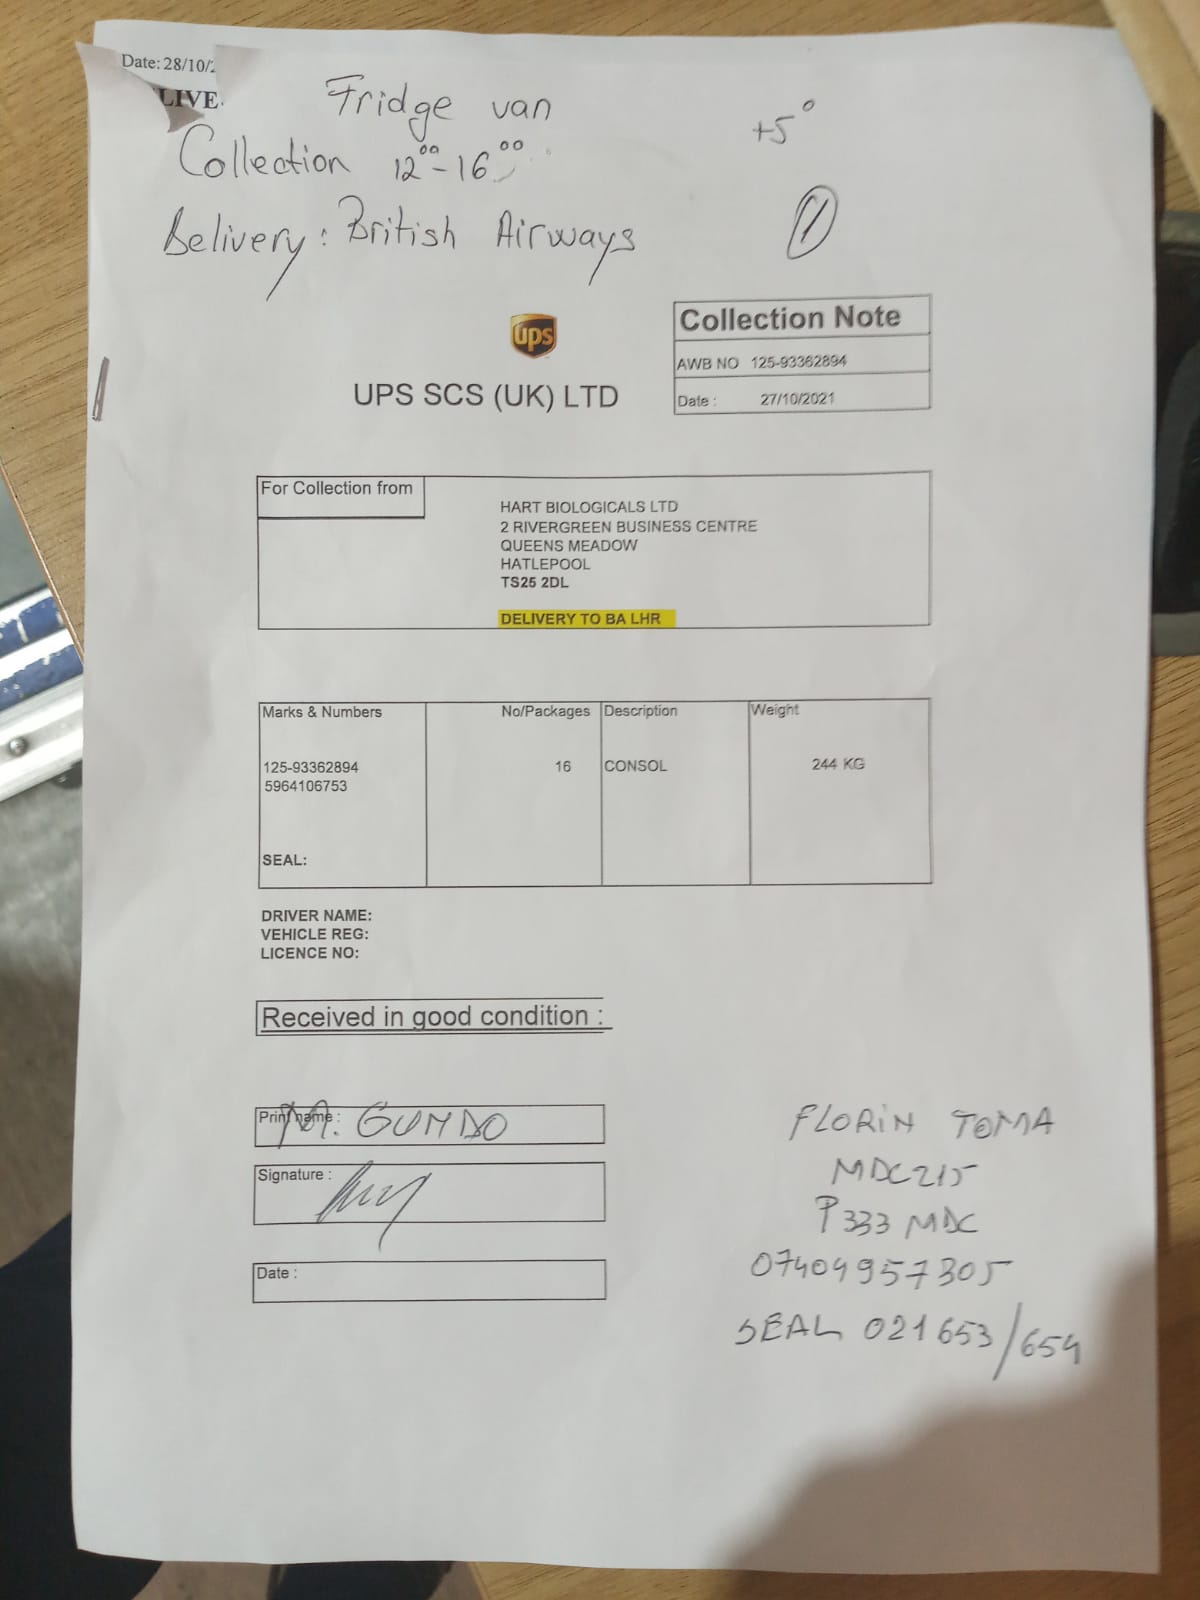 Date: 28/10/2
LIVE
Fridge van
+5°
Collection 12⁰⁰-16⁰⁰
1
Delivery: British Airways
ups
Collection Note
AWB NO 125-93362894
UPS SCS (UK) LTD
Date : 27/10/2021
For Collection from
HART BIOLOGICALS LTD
2 RIVERGREEN BUSINESS CENTRE
QUEENS MEADOW
HATLEPOOL
TS25 2DL
DELIVERY TO BA LHR
Marks & Numbers No/Packages Description Weight
125-93362894 16 CONSOL 244 KG
5964106753
SEAL:
DRIVER NAME:
VEHICLE REG:
LICENCE NO:
Received in good condition :
Print name : M. GUMDO
FLORIN TOMA
Signature :
MDC215
P333 MDC
Date :
07404957305
SEAL 021653/654